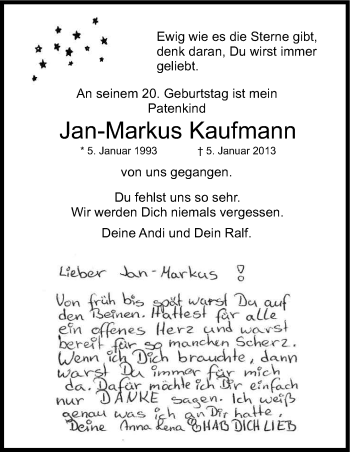 Ewig wie es die Sterne gibt,
denk daran, Du wirst immer
geliebt.
An seinem 20. Geburtstag ist mein
Patenkind
Jan-Markus Kaufmann
* 5. Januar 1993 † 5. Januar 2013
von uns gegangen.
Du fehlst uns so sehr.
Wir werden Dich niemals vergessen.
Deine Andi und Dein Ralf.
Lieber Jan-Markus !
Von früh bis spät warst Du auf
den Beinen. Hattest für alle
ein offenes Herz und warst
bereit für so manchen Scherz.
Wenn ich Dich brauchte, dann
warst Du immer für mich
da. Dafür möchte ich Dir einfach
nur DANKE sagen. Ich weiß
genau was ich an Dir hatte,
Deine Anna Lena HAB DICH LIEB